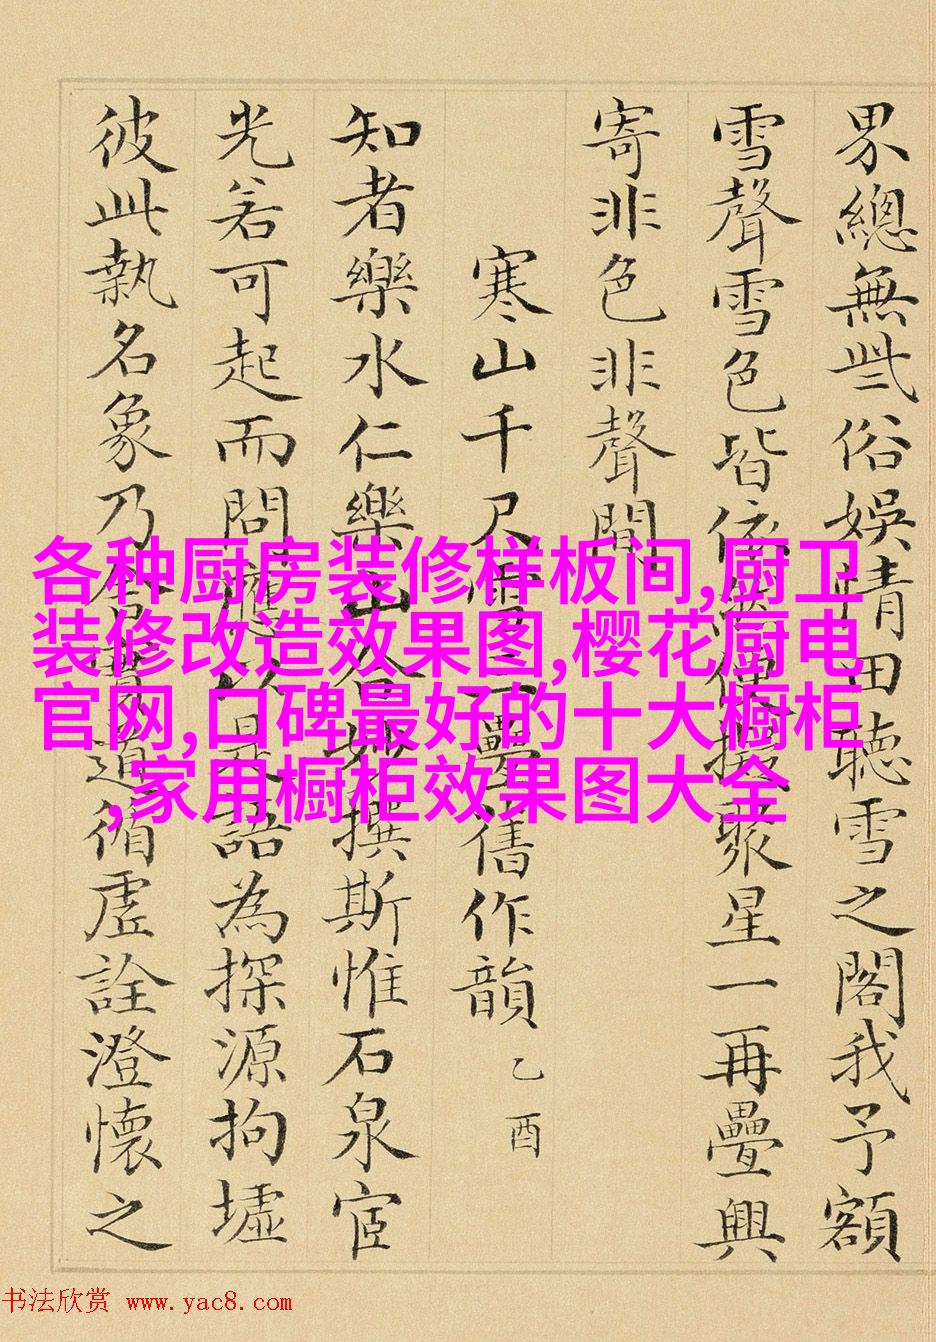 界總無些俗娛情田聽雪之閣我予額
雪聲雪色皆依聚星一再疊興
寄非色非聲間
寒山千尺雪三疊舊作韻 乙酉
知者樂水仁樂山撰斯惟石泉宦
光若可起而問應以是語為探源拘墟
彼此執名象乃循虛詮澄懷之
各种厨房装修样板间,厨卫
装修改造效果图,樱花厨电
官网,口碑最好的十大橱柜
,家用橱柜效果图大全
书法欣赏 www.yac8.com